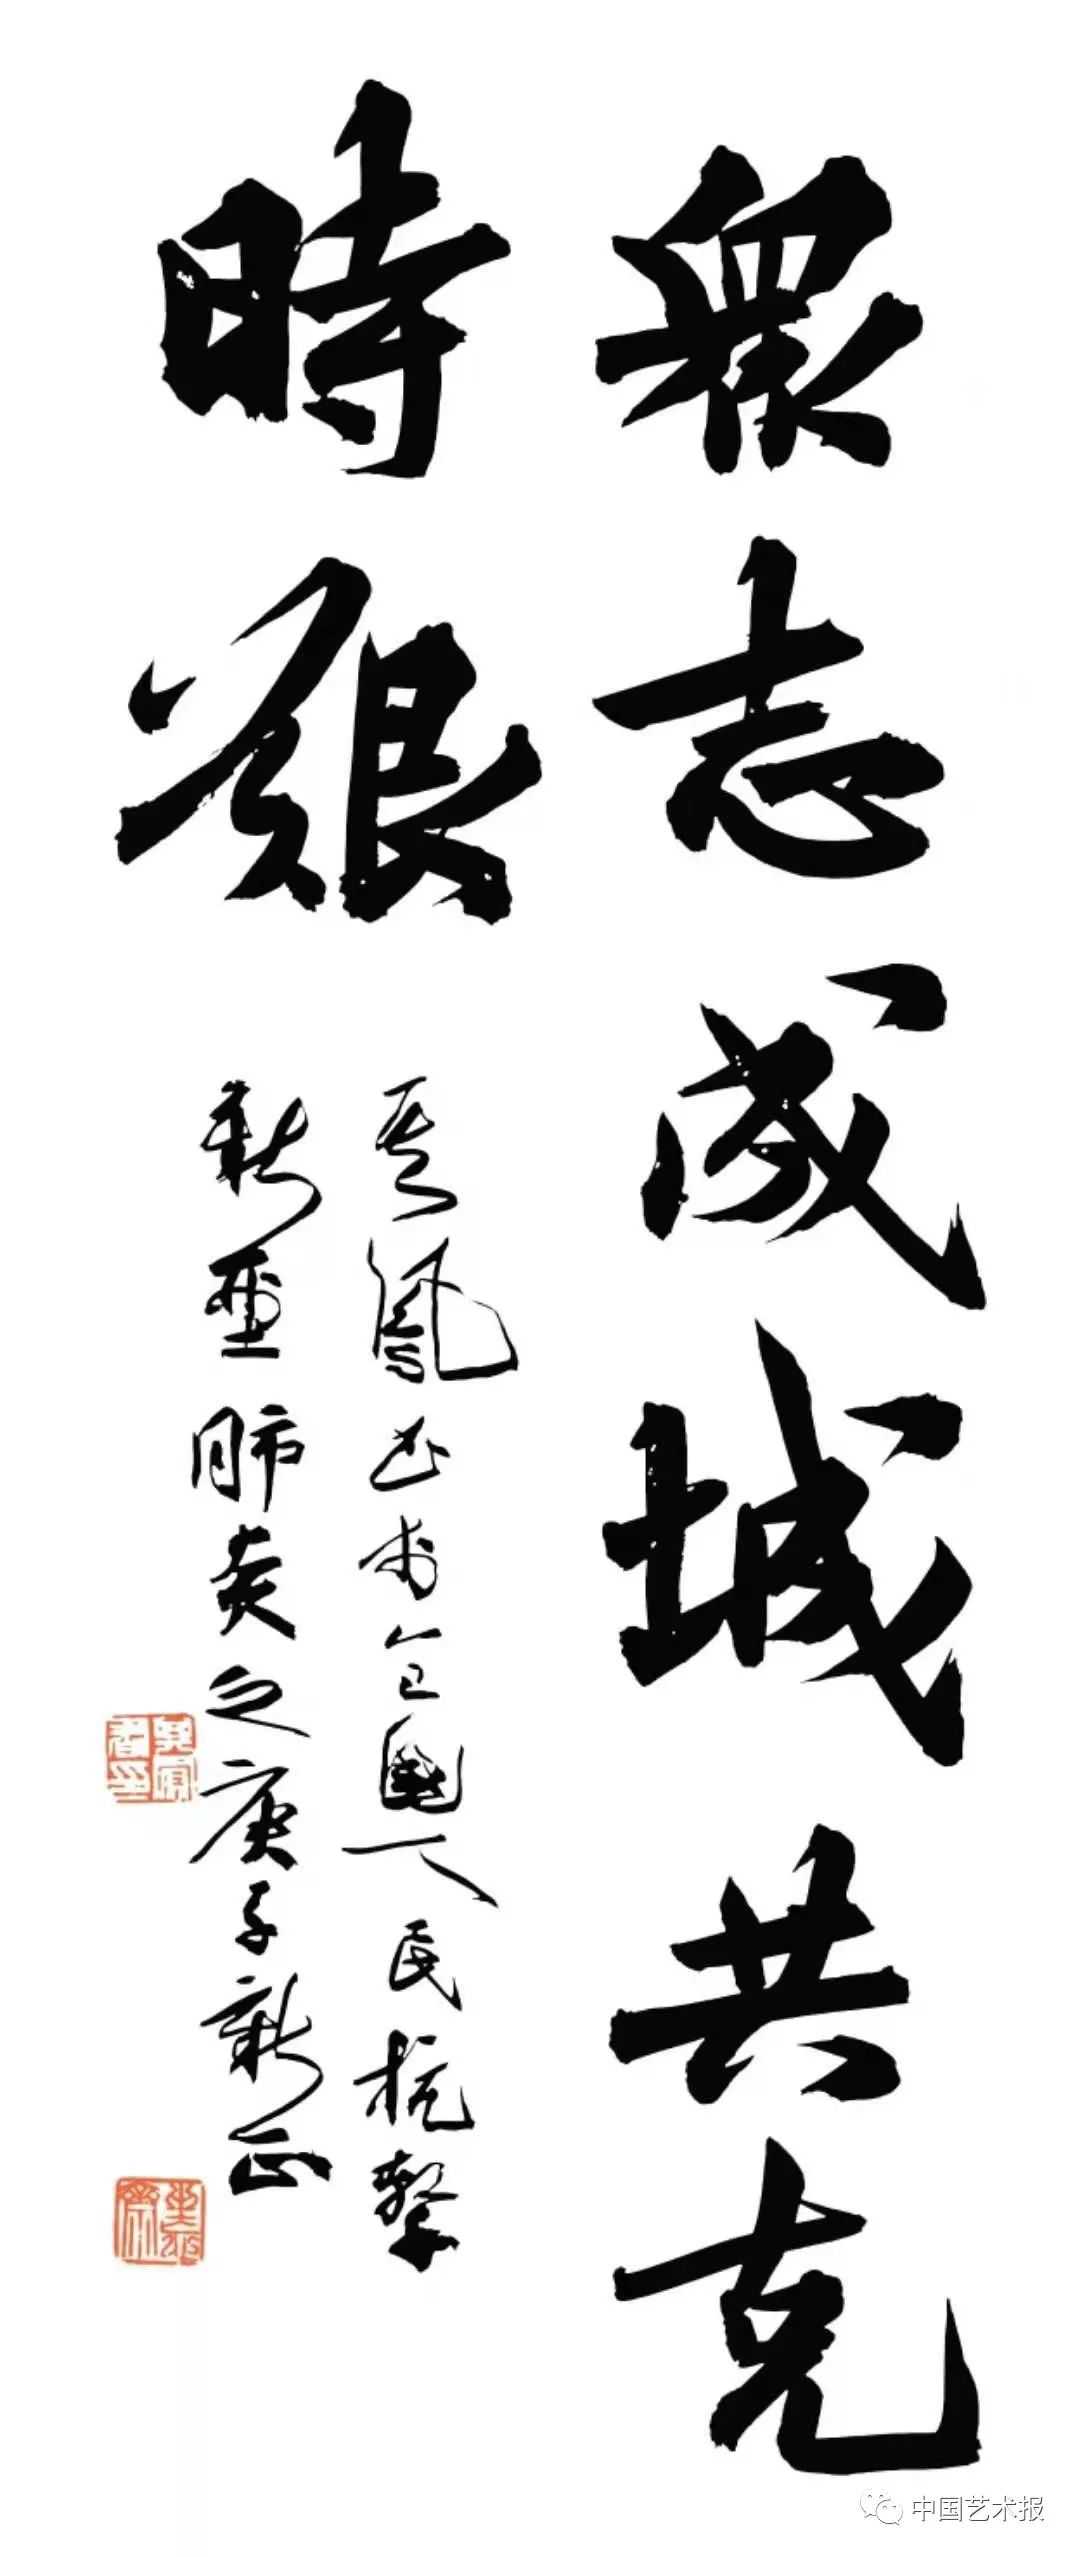 眾志成城共克
時艱
吳鳳山書全國人民抗擊
新型肺炎之庚子新正
中国艺术报